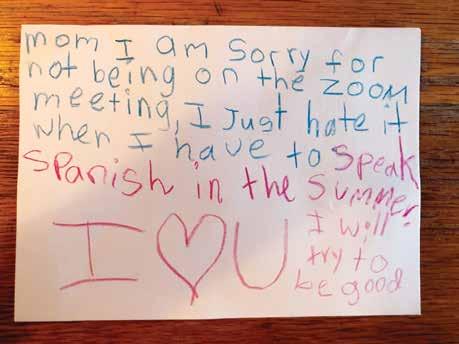 mom I am Sorry for
not being on the ZOOM
meeting, I Just hate it
when I have to Speak
Spanish in the Summer.
I ♡ U
I will
try to
be good